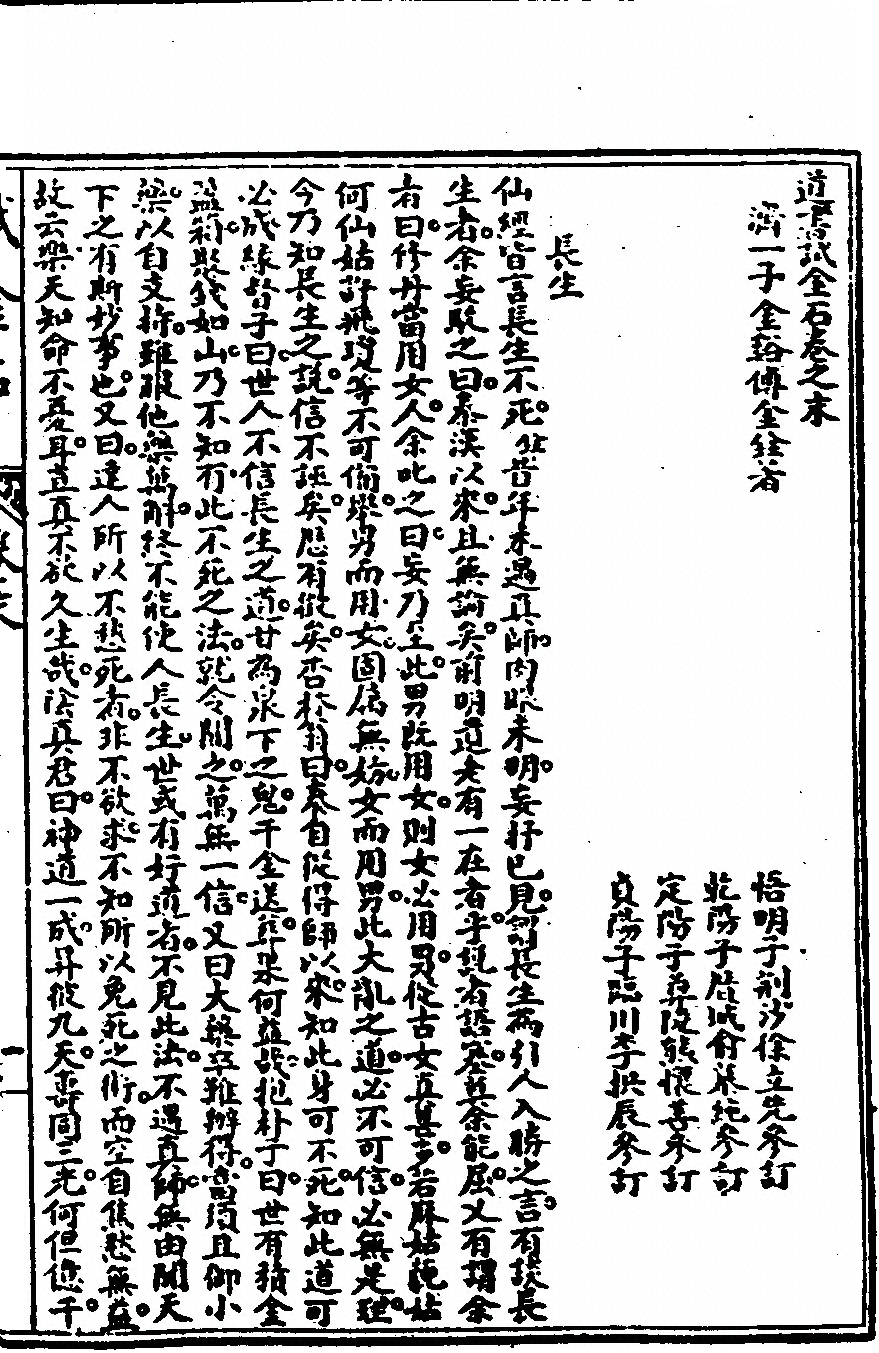 道書試金石卷之末
濟一子金谿傅金銓著
悟明子荊沙徐立先參訂
乾陽子 城俞慕純參訂
定陽子 陵熊懷善參訂
貞陽子臨川李拱辰參訂
長生
仙經皆言長生不死。 昔年未遇真師。肉眼未明。妄抒己見。謂長生為引人入勝之言。有談長
生者。余妄駁之曰。秦漢以來。且無論矣。前明造老有一在者乎。說者語塞。 余能屈。又有謂余
者曰。修丹當用女人。余叱之曰。妄乃至此。男既用女。則女必用男。從古女真甚多。若麻姑諶姑
何仙姑許飛瓊等。不可備舉。男而用女。固屬無妨。女而用男。此大亂之道。必不可信。必無是理。
今乃知長生之說。信不誣矣。歷有徵矣。杏林翁曰。泰自從得師以來。知此身可不死。知此道可
必成。緣督子曰。世人不信長生之道。甘為泉下之鬼。千金送葬。果何益哉。抱朴子曰。世有積金
盈箱。聚錢如山。乃不知有此不死之法。就令聞之。萬無一信。又曰。大藥卒難辦得。當須且御小
藥以自支持。雖服他藥萬斛。終不能使人長生。世或有好道者。不見此法。不遇真師。無由聞天
下之有斯妙事也。又曰。達人所以不愁死者。非不欲求。不知所以免死之術。而空自焦愁無益。
故云樂天知命不憂耳。豈真不欲久生哉。陰真君曰。神道一成。昇彼九天。壽同三光。何但億千。